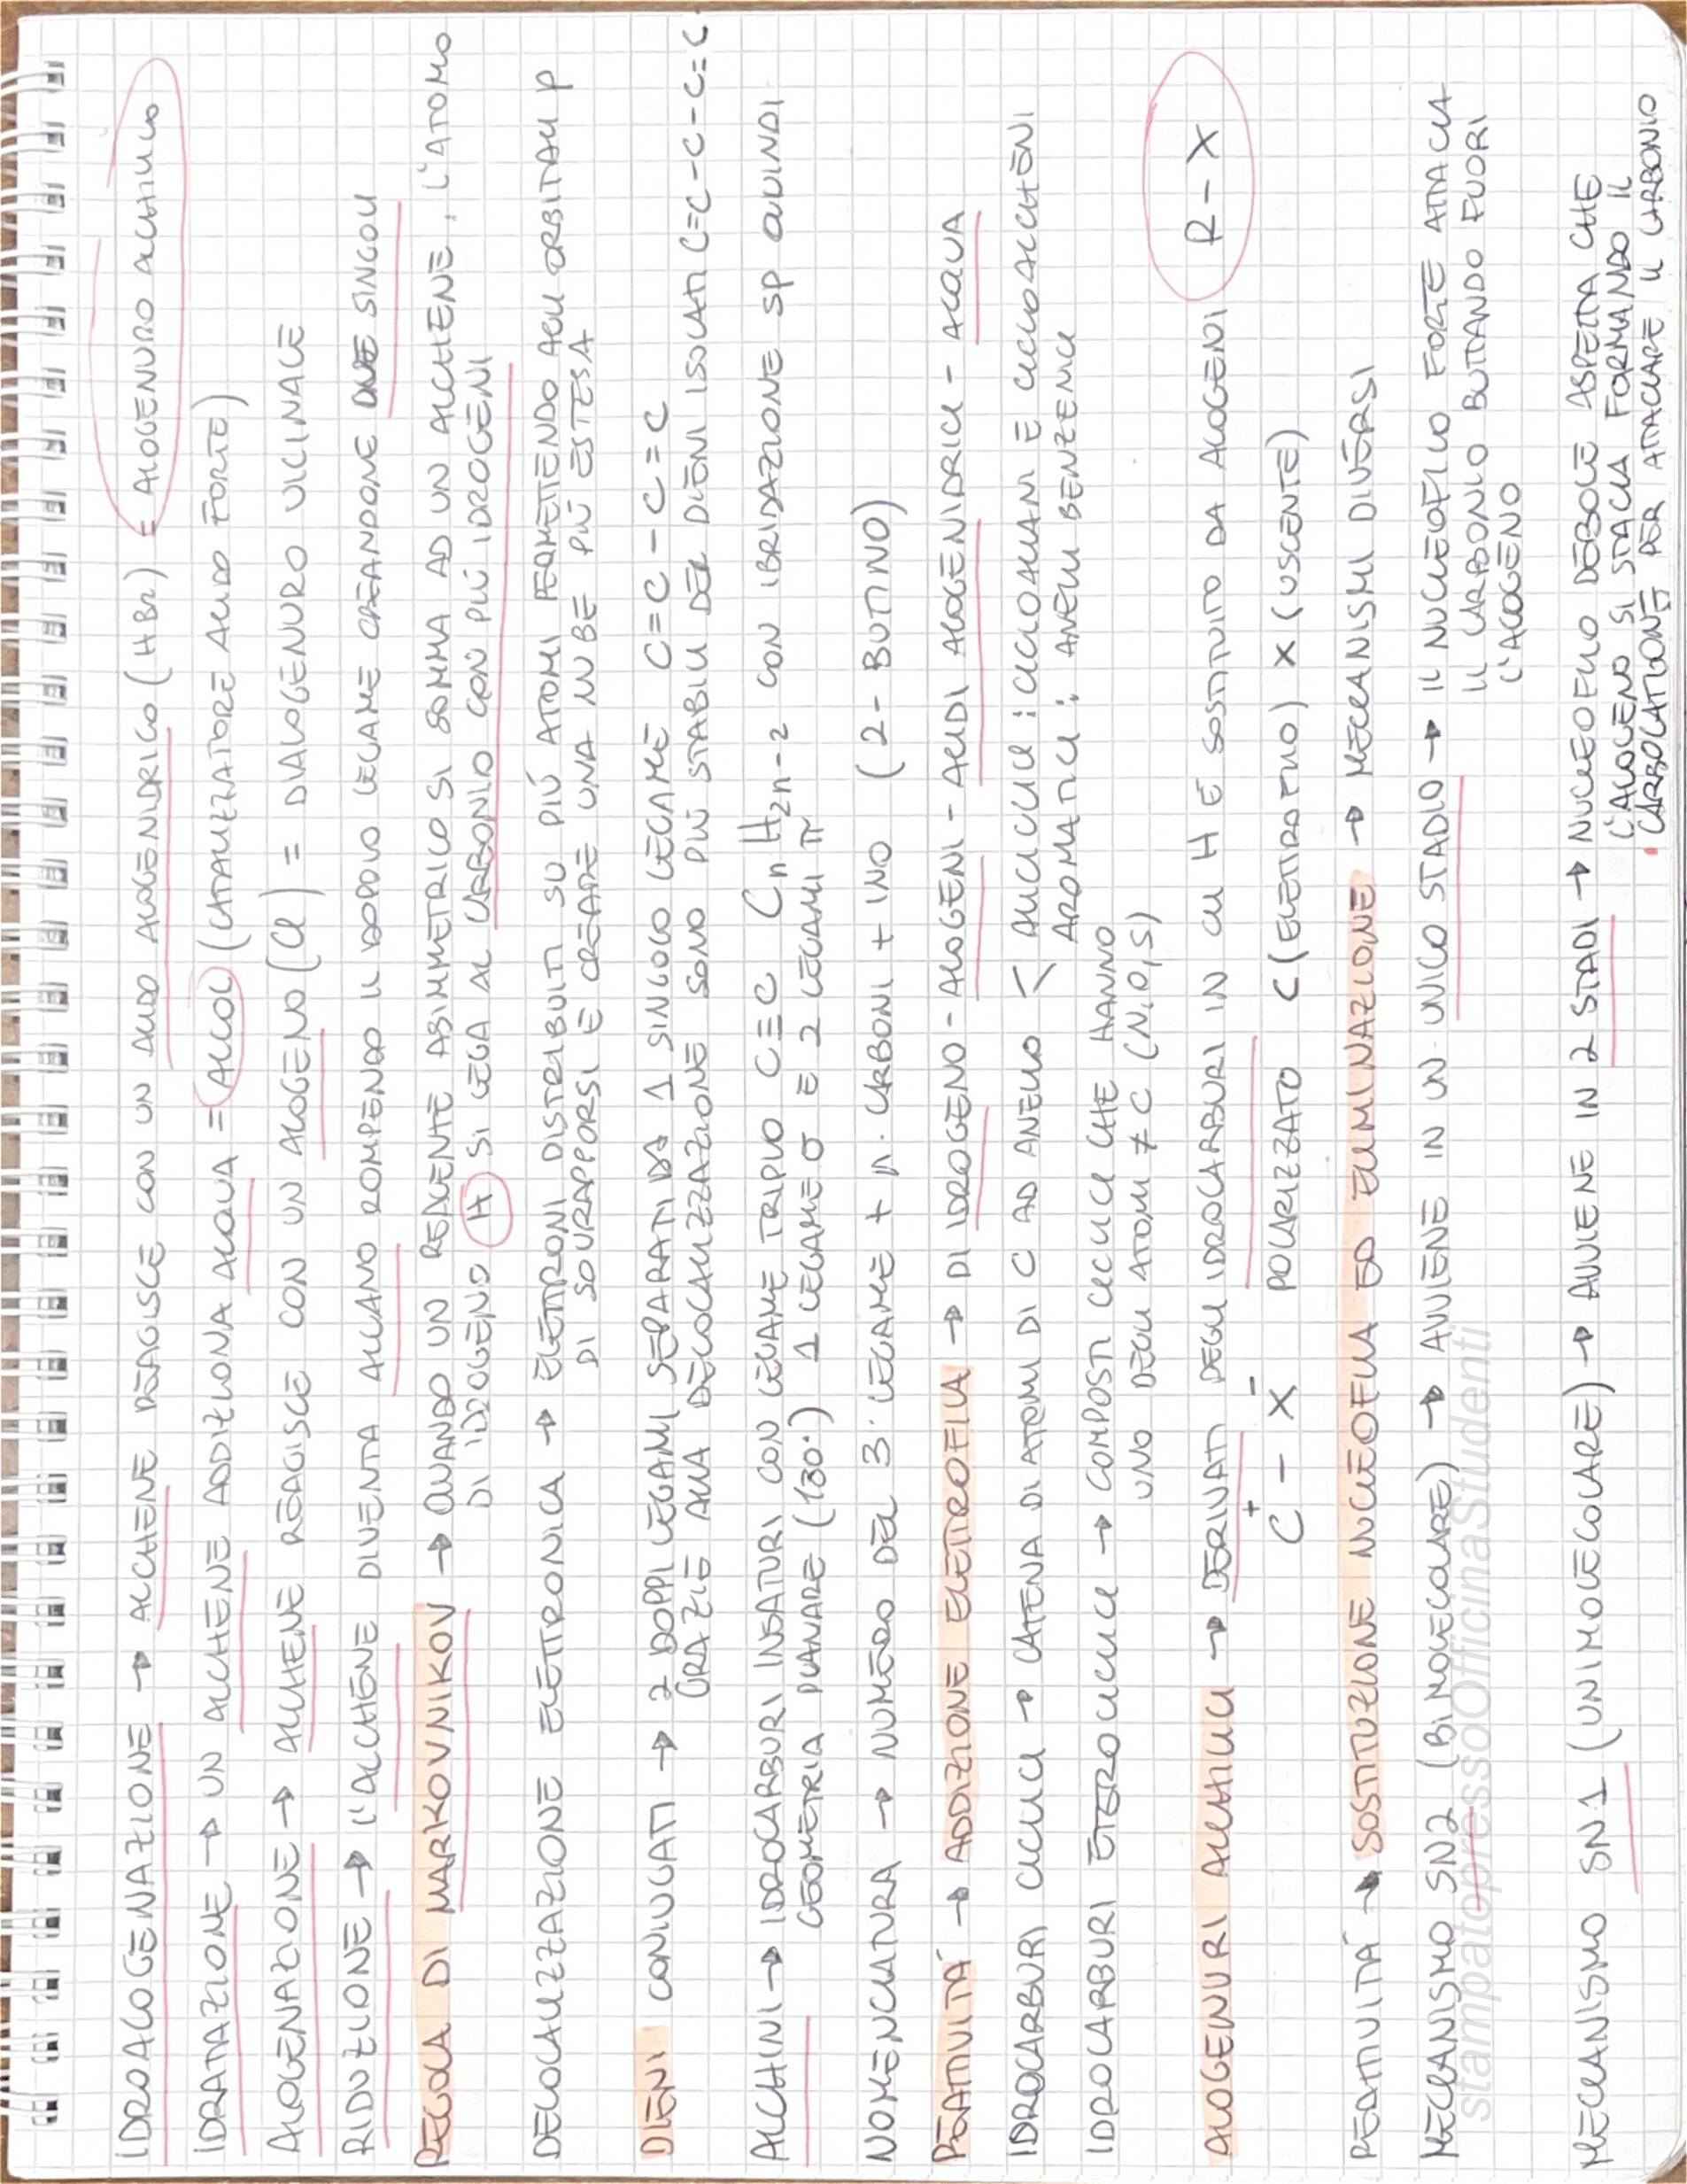 IDROALOGENAZIONE → ALCHENE REAGISCE CON UN ACIDO ALOGENIDRICO (HBr) = ALOGENURO ALCHILICO
IDRATAZIONE → UN ALCHENE ADDIZIONA ACQUA = ALCOL (CATALIZZATORE ACIDO FORTE)
ALOGENAZIONE → ALCHENE REAGISCE CON UN ALOGENO (Cl) = DIALOGENURO VICINALE
RIDUZIONE → L'ALCHENE DIVENTA ALCANO ROMPENDO IL DOPPIO LEGAME CREANDONE DUE SINGOLI
REGOLA DI MARKOVNIKOV → QUANDO UN REAGENTE ASIMMETRICO SI SOMMA AD UN ALCHENE, L'ATOMO
DI IDROGENO (H) SI LEGA AL CARBONIO CON PIÚ IDROGENI
DELOCALIZZAZIONE ELETTRONICA → ELETTRONI DISTRIBUITI SU PIÚ ATOMI PERMETTENDO AGLI ORBITALI p
DI SOVRAPPORSI E CREARE UNA NUBE PIÚ ESTESA
DIENI CONIUGATI → 2 DOPPI LEGAMI SEPARATI DA 1 SINGOLO LEGAME C=C-C=C
GRAZIE ALLA DELOCALIZZAZIONE SONO PIÚ STABILI DEI DIENI ISOLATI C=C-C-C=C
ALCHINI → IDROCARBURI INSATURI CON LEGAME TRIPLO C≡C CnH2n-2 CON IBRIDAZIONE SP QUINDI
GEOMETRIA PLANARE (180°) 1 LEGAME σ E 2 LEGAMI π
NOMENCLATURA → NUMERO DEL 3° LEGAME + n. CARBONI + INO (2-BUTINO)
REATTIVITÁ → ADDIZIONE ELETTROFILA → DI IDROGENO - ALOGENI - ACIDI ALOGENIDRICI - ACQUA
IDROCARBURI CICLICI → CATENA DI ATOMI DI C AD ANELLO < ALICICLICI : CICLOALCANI E CICLOALCHENI
AROMATICI : ANELLI BENZENICI
IDROCARBURI ETEROCICLICI → COMPOSTI CICLICI CHE HANNO
UNO DEGLI ATOMI ≠ C (N,O,S)
ALOGENURI ALCHILICI → DERIVATI DEGLI IDROCARBURI IN CUI H É SOSTITUITO DA ALOGENI R-X
C⁺ - X⁻ POLARIZZATO C (ELETTROFILO) X (USCENTE)
REATTIVITÁ → SOSTITUZIONE NUCLEOFILA ED ELIMINAZIONE → MECCANISMI DIVERSI
MECCANISMO SN2 (BIMOLECOLARE) → AVVIENE IN UN UNICO STADIO → IL NUCLEOFILO FORTE ATTACCA
IL CARBONIO BUTTANDO FUORI
L'ALOGENO
MECCANISMO SN1 (UNIMOLECOLARE) → AVVIENE IN 2 STADI → NUCLEOFILO DEBOLE ASPETTA CHE
L'ALOGENO SI STACCA FORMANDO IL
CARBOCATIONE PER ATTACCARE IL CARBONIO
stampatopressoOfficinaStudenti